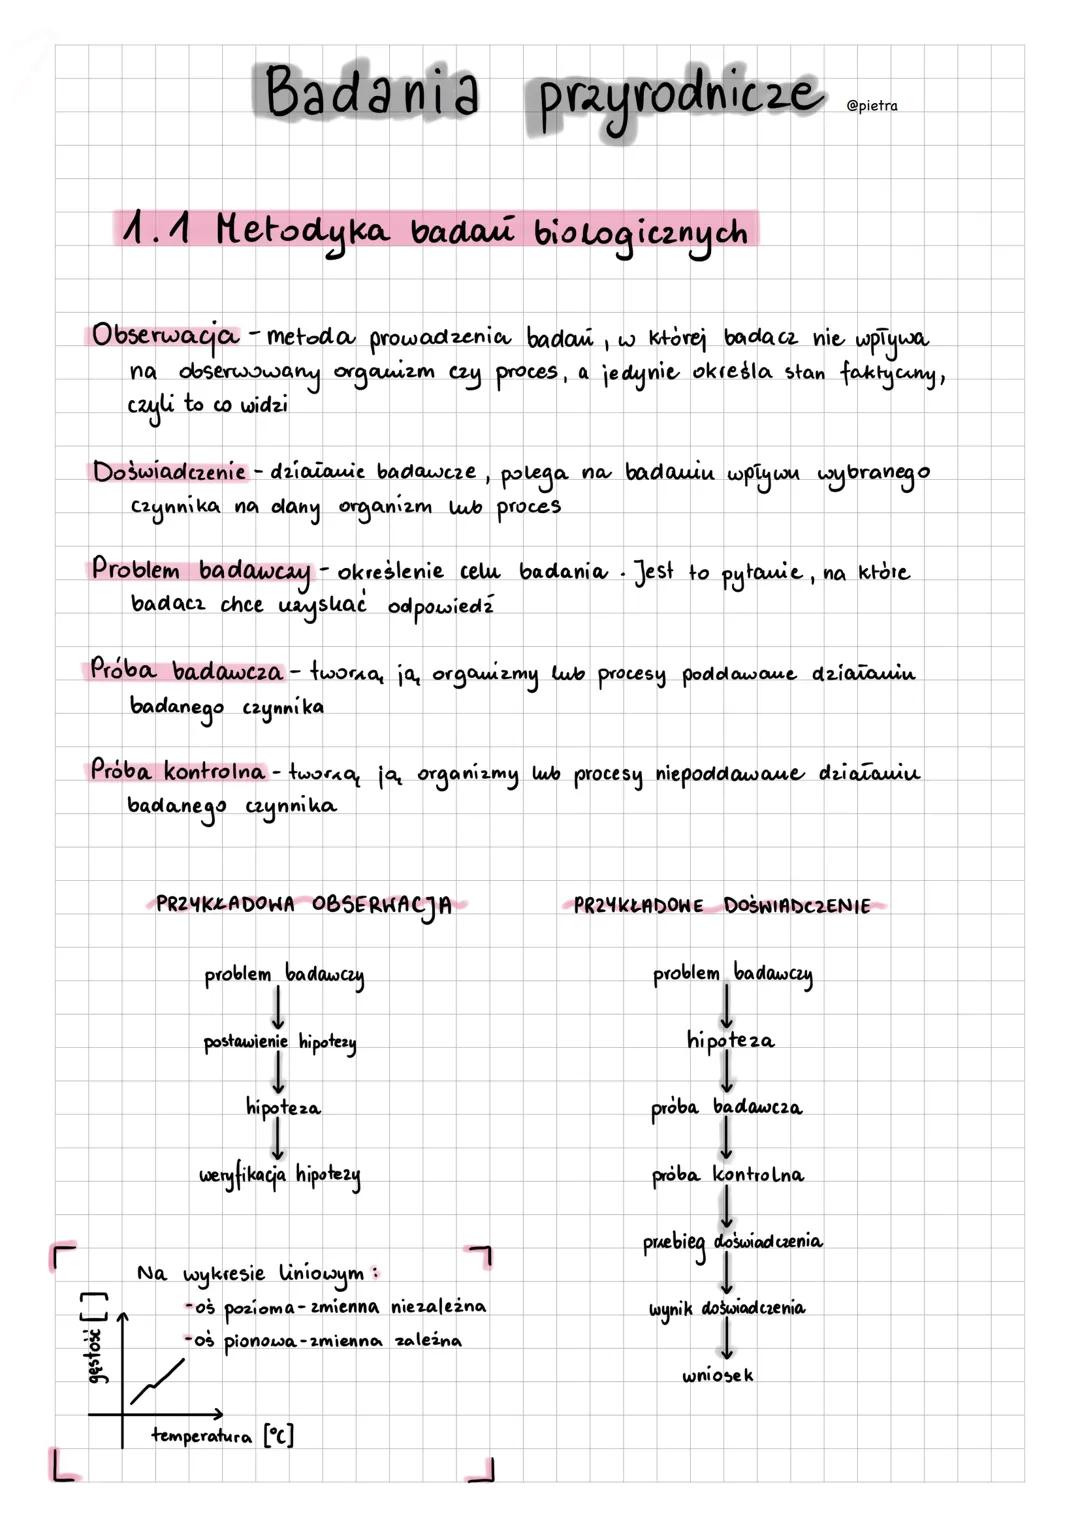 Badania przyrodnicze @pietra
1.1 Metodyka badań biologicznych
Obserwacja - metoda prowadzenia badań, w której badacz nie wpływa
na obserwowany organizm czy proces, a jedynie określa stan faktyczny,
czyli to co widzi
Doświadczenie - działanie badawcze, polega na badaniu wpływu wybranego
czynnika na dany organizm lub proces
Problem badawczy - określenie celu badania. Jest to pytanie, na które
badacz chce uzyskać odpowiedź
Próba badawcza - tworzą ją organizmy lub procesy poddawane działaniu
badanego czynnika
Próba kontrolna - tworzą ją organizmy lub procesy niepoddawane działaniu
badanego czynnika
PRZYKŁADOWA OBSERWACJA
problem badawczy
postawienie hipotezy
hipoteza
weryfikacja hipotezy
PRZYKŁADOWE DOŚWIADCZENIE
problem badawczy
hipoteza
próba badawcza
próba kontrolna
przebieg doświadczenia
wynik doświadczenia
wniosek
Na wykresie liniowym:
-oś pozioma - zmienna niezależna
-oś pionowa - zmienna zależna
gęstość [ ]
temperatura [°C]